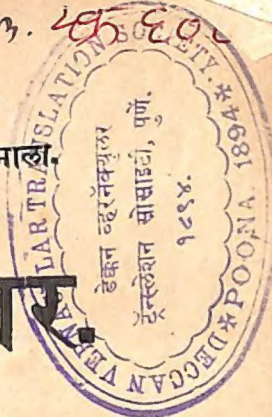 माला.
DECCAN VERNACULAR TRANSLATION SOCIETY.
* POONA. 1894 *
डेक्कन व्हरनॅक्युलर
ट्रॅन्स्लेशन सोसाइटी, पुणें.
१८९४.